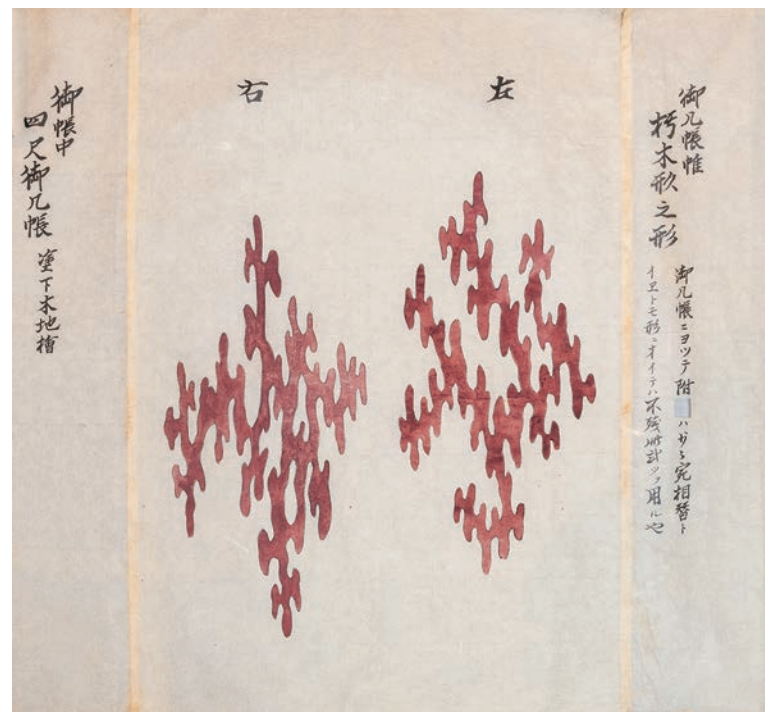 御几帳帷
朽木形之形
御几帳ニヨツテ附 ハガヽ宛相替ト
イヱトモ形ニオイテハ不残此計ツヽ用ル也
左
右
御帳中
四尺御几帳 塗下木地檜